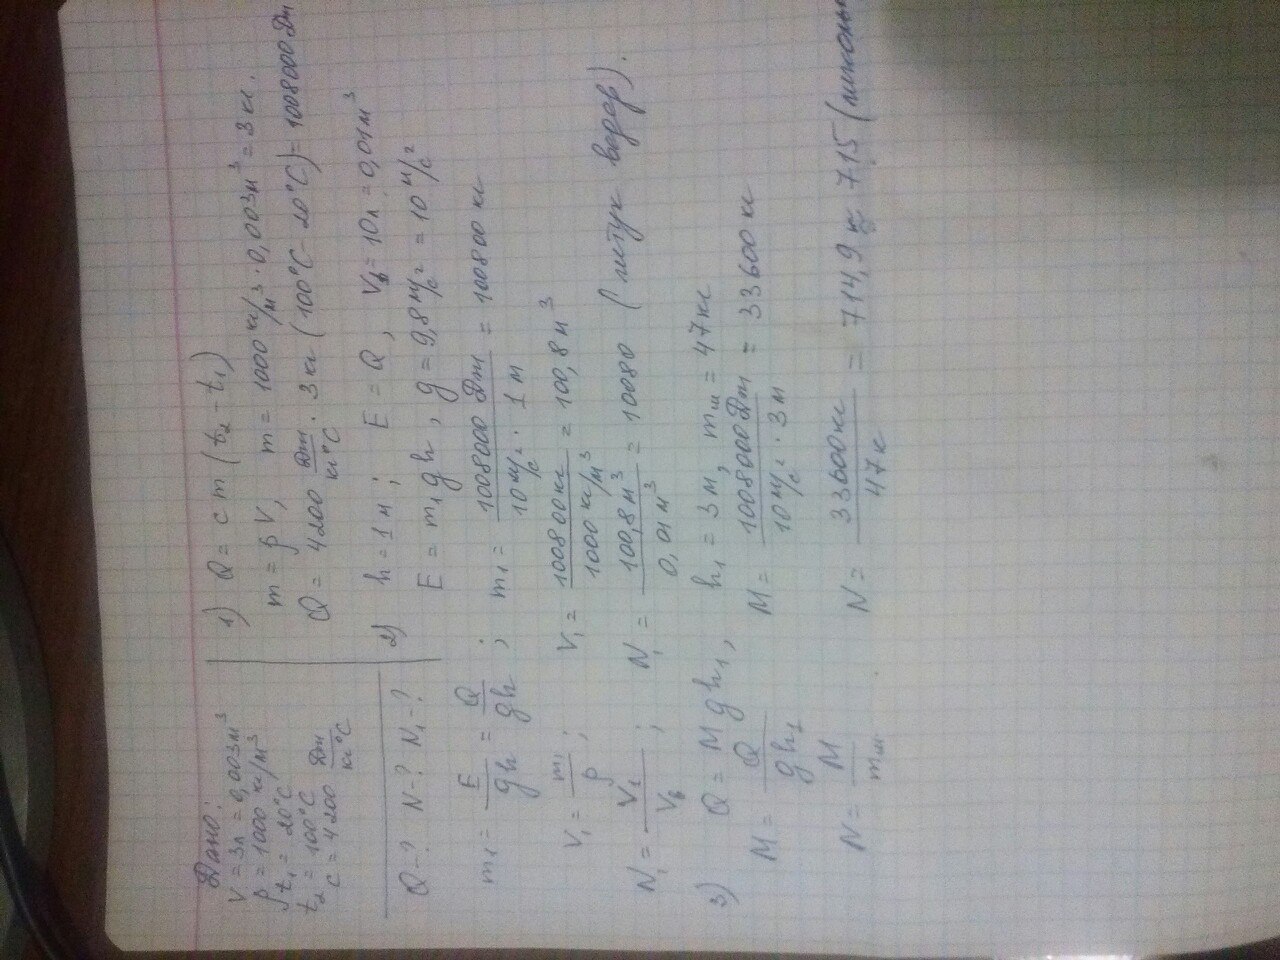 Дано:
V = 3л = 0,003м³
ρ = 1000 кг/м³
t₁ = 20°C
t₂ = 100°C
c = 4200 Дж/кг°C
Q-? N-? N₁-?
1) Q = c m (t₂ - t₁)
m = ρ V, m = 1000 кг/м³ · 0,003м³ = 3 кг.
Q = 4200 Дж/кг°C · 3 кг (100°C - 20°C) = 1008000 Дж
2) h = 1 м; E = Q, Vв = 10л = 0,01м³
E = m₁gh, g = 9,8 м/с² = 10 м/с²
m₁ = E/gh = Q/gh; m₁ = 1008000 Дж/10 м/с² · 1 м = 100800 кг
V₁ = m₁/ρ; V₁ = 100800кг/1000 кг/м³ = 100,8 м³
N₁ = V₁/Vв; N₁ = 100,8 м³/0,01м³ = 10080 (штук ведер).
3) Q = M gh₁, h₁ = 3 м, mш = 47кг
M = Q/gh₁ M = 1008000 Дж/10 м/с² · 3 м = 33600 кг
N = M/mш N = 33600кг/47кг = 714,9 ≈ 715 (школь